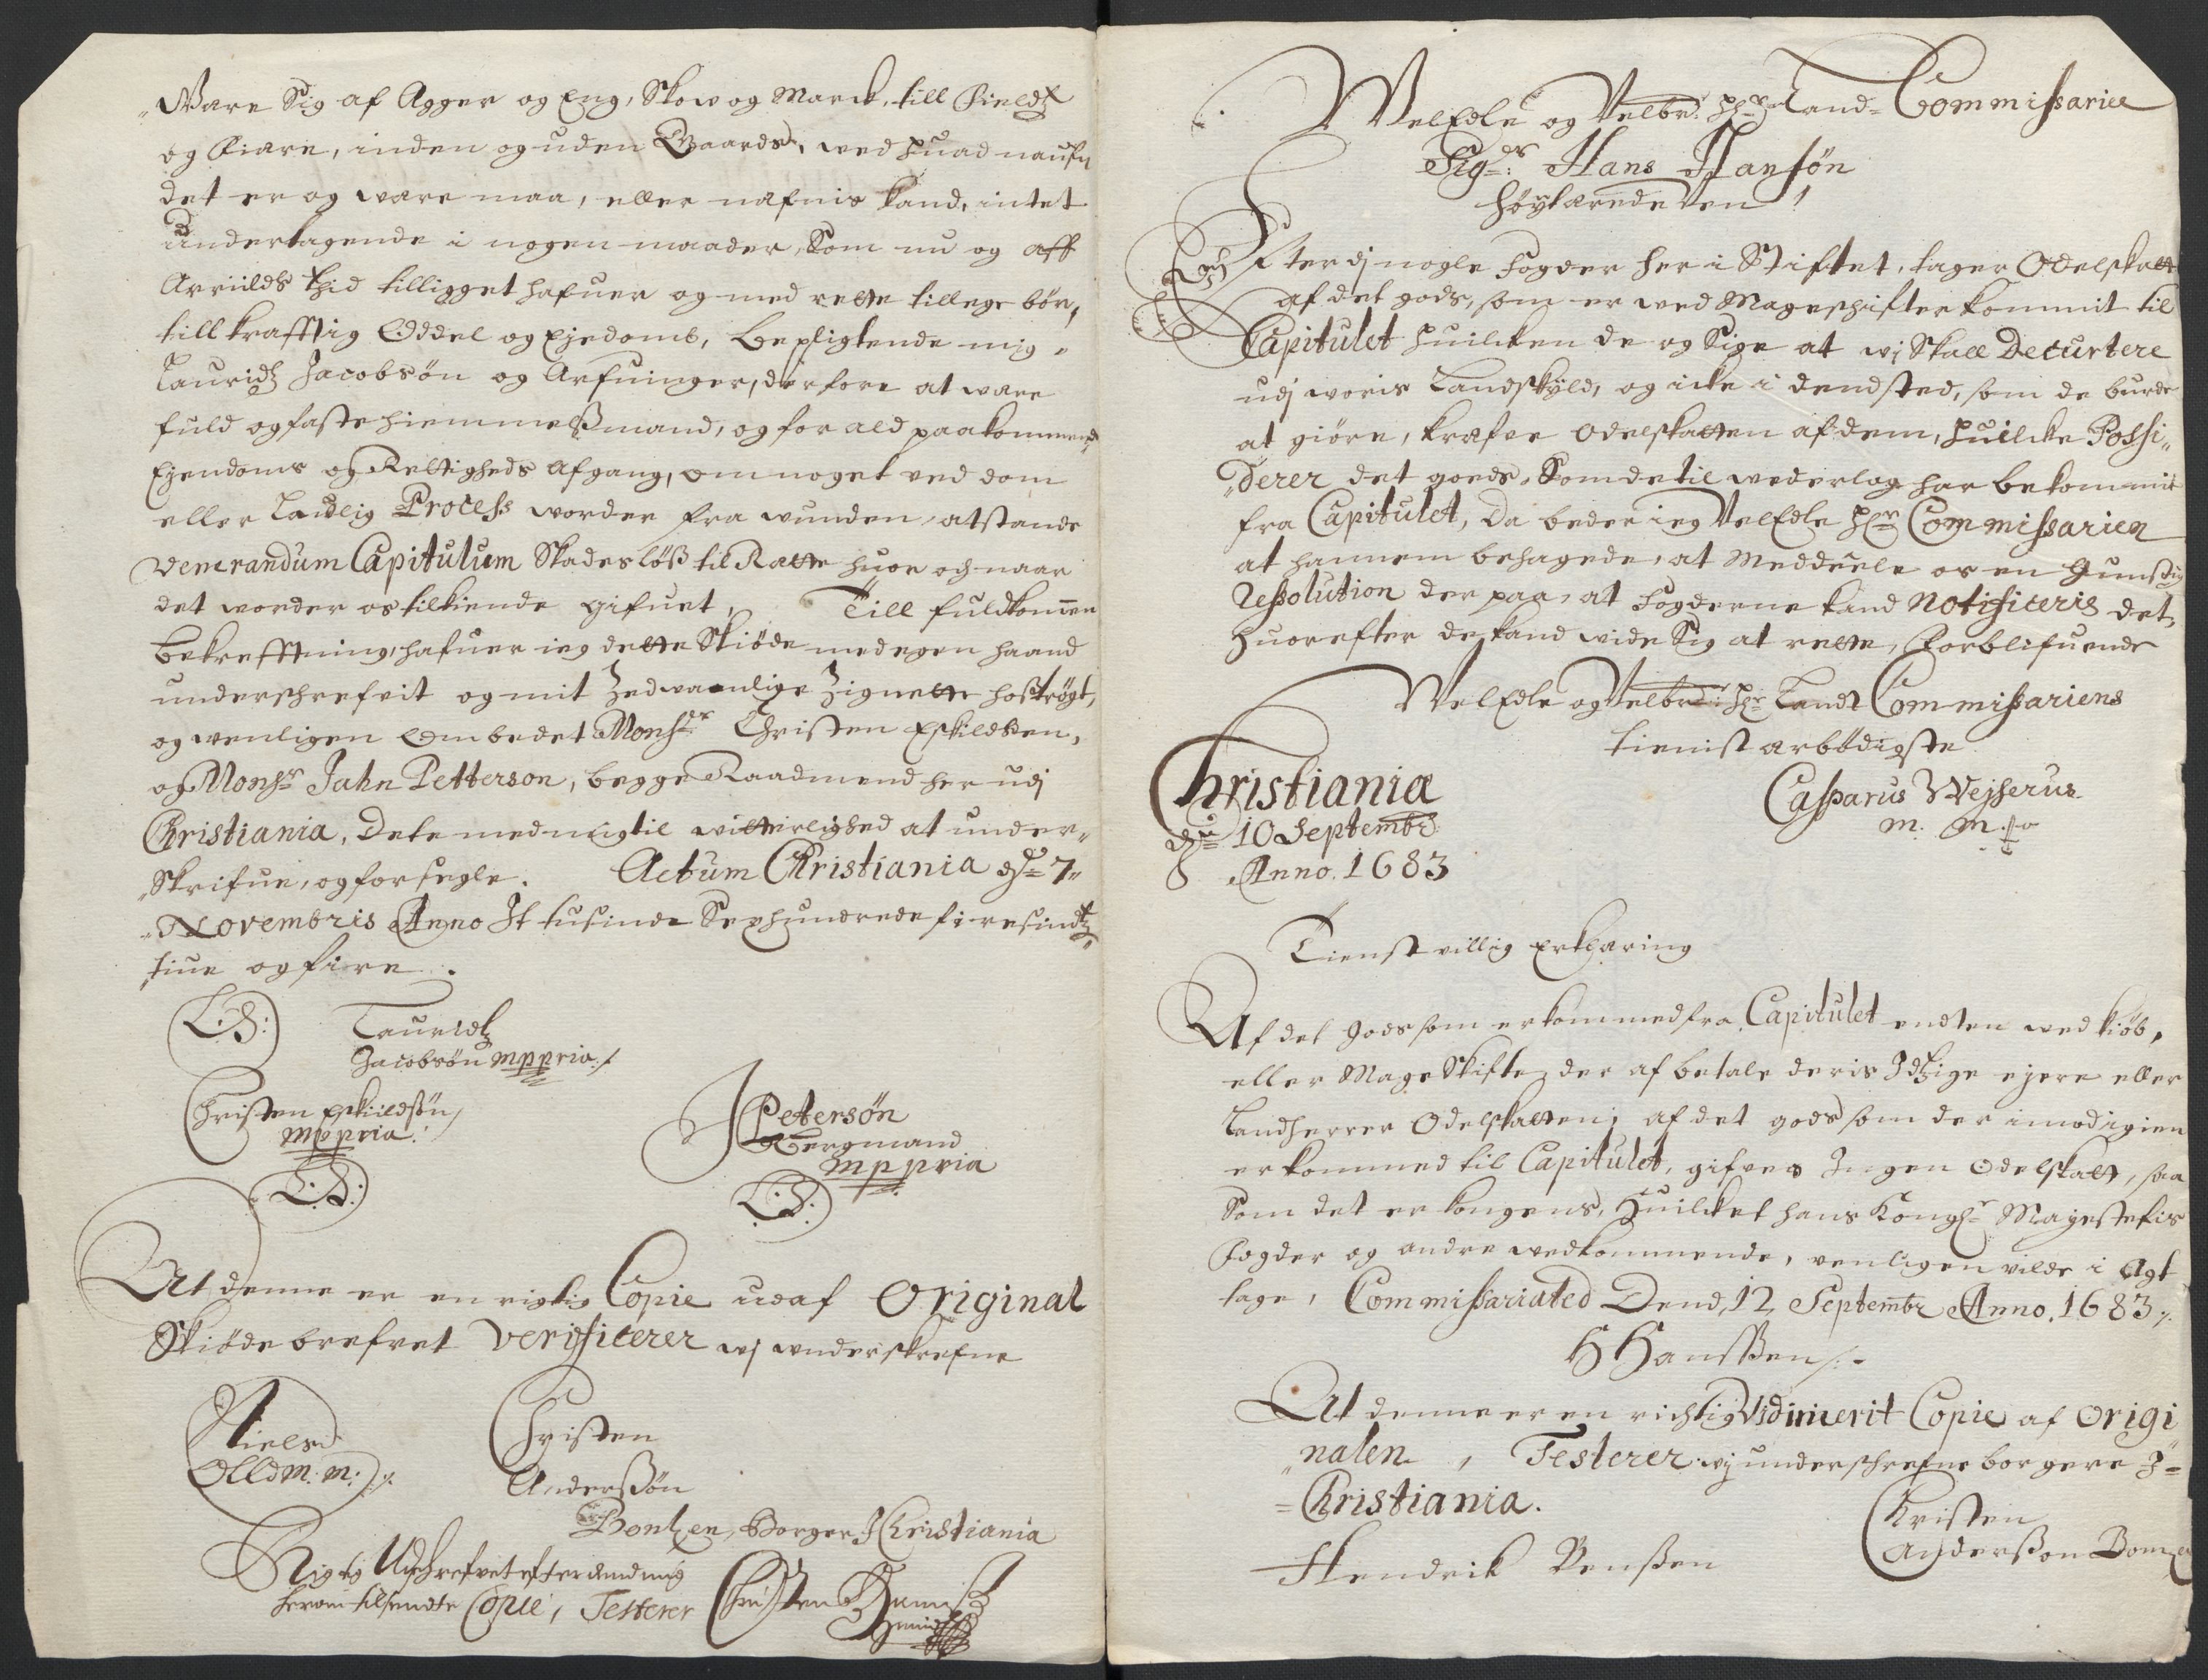 Ware Sig af Agger og Eng, Skow og Marck, till Fieldz
og Fiære, inden og uden Gaards, wed huad naufn
det er og være maa, eller nafnis kand, intet
undertagende i nogen maader, Som nu og aff
Arrilds thid tilligget hafuer og med rette tillege bør,
till krafftig Oddel og Ejedomb, Bepligtende mig
Lauridz Jacobsøn og Arfuinger, derfore at være
fuld og faste hiemmelßmand, og for ald paakommende
Ejendoms og Rettigheds afgang, om noget ved dom
eller Laulig Process worder fra wunden, at stande
Venerandum Capitulum Skadesløß til Rætte huor och naar
det worder os tilkiende gifuet, Till fuldkommen
bekrefftning, hafuer ieg dette Skiøde med egen haand
underschrefvit og mit Zedwaanlige Zignette hostrøgt,
og wenligen Ombedet Monsr Christen Eskildsen,
og Monsr Jahn Petterson, begge Raadmend her udj
Christiania, Dete med mig til witterlighed at under-
Skrifue, og forsegle. Actum Christiania dn 7
Novembris Anno It tusinde Sexhundrede firesindz
tiue og fire.
L.S: Lauridz
Jacobsøn mppria
Christen Eskildsøn
mppria
J Petersøn
Bergmand
mppria
L.S: L.S:
At denne er en rigtig Copie udaf Original
Skiødebrefvet Verificerer wj underskrefne
Niels
Olld m. m:
Christen
Anderssøn
Bontzen, Borger I Christiania
Rigtig Udschrefvet efter dend mig
herom tilsendte Copie, Testerer Christen
WelEdle og Velbr: Hr Land-Commissarie
Sigr: Hans Hansøn
Høytærede Ven!
Efterdj nogle Fogder her i Stiftet, tager Odelskatt
af det gods, som er wed Mageschifter kommit til
Capitulet huilcken de og Sige at wj Skall Decurtere
udj woris Landskyld, og icke i dend sted, som de burde
at giøre, kræfve Odelskatten af dem, huilcke Possi-
derer det goeds, Som de til wederlag har bekommit
fra Capitulet, Da beder ieg VelEdle Hr Commissarien
at hannem behagede, at Meddeele os en gunstig
Ressolution der paa, at Fogderne kand Notificeris det,
Huorefter de kand wide Sig at rette, Forblifuende
WelEdle og Velbrd: Hr Landt Commissariens
tienistarbødigste
Christianiæ
dn 10 Septembr
Anno. 1683
Casparus Wejserus
m. m. pa
Tienstvillig Erklæring
Af det gods som er kommed fra Capitulet endten wed kiøb,
eller MageSkifte, der af betale deris Idtzige ejere eller
Landherrer Odelskatten; af det gods som der imod igien
er kommed til Capitulet, gifves Ingen Odelskatt, saa
Som det er kongens, Huilcket hans Kongl Mayestetis
Fogder og andre wedkommende, venligen vilde i Agt
tage, Commissariated Dend, 12, Septembr Anno. 1683
H Hanssen
At denne er en richtig Vidimerit Copie af Origi
nalen, Testerer wij underschrefne borgere I
Christiania.
Hendrik Benssen
Christen
Andersson Bontzen